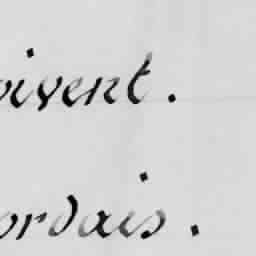 oivent.
ordais.